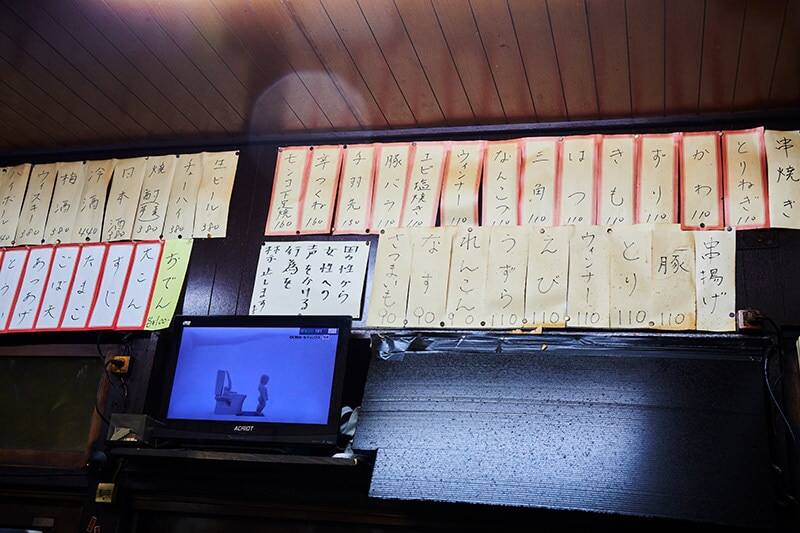 串焼き
とりねぎ 110
かわ 110
ずり 110
きも 110
はつ 110
三角 110
なんこつ 110
ウィンナー 110
エビ塩焼き 110
豚バラ 110
手羽先
辛つくね 160
下足焼 160
ビール 580
チューハイ 380
焼酎 380
日本酒 380
冷酒
梅酒 380
ウィスキー 380
ハイボール
串揚げ
豚 110
とり 110
ウィンナー 110
えび 110
うずら 110
れんこん 90
なす 90
さつまいも 90
男性から
女性への
声を
行為を
禁止します
おでん
大こん
すじ
たまご
ごぼ天
あつあげ
とう